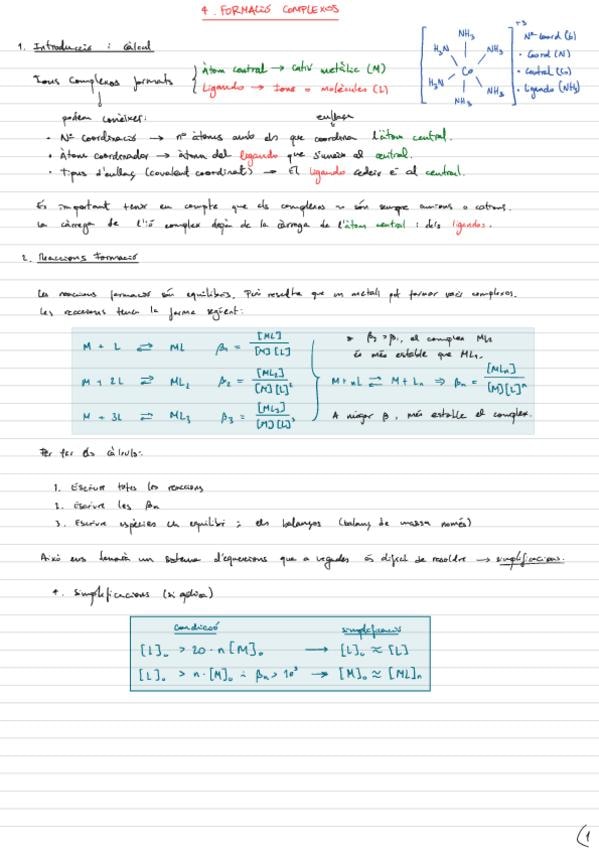 4. FORMACIÓ COMPLEXOS
1. Introducció i càlcul
Ions complexos formats
Àtom central → Catió metàlic (M)
Ligando → Ions o Molècules (L)
+3
NH3
H3N
NH3
Co
H3N
NH3
NH3
Nº coord (6)
· Coord (N)
· central (Co)
· Ligando (NH3)
podem conèixer:
enllaça
· Nº coordinació → nº àtoms amb els que coordina l'àtom central.
· Àtom coordinador → àtom del ligando que s'uneix al central.
· Tipus d'enllaç (covalent coordinat) → El ligando cedeix e⁻ al central.
És important tenir en compte que els complexos no són sempre anions o cations.
La càrrega de l'ió complex depèn de la càrrega de l'àtom central i dels ligandos.
2. Reaccions Formació
Les reaccions formació són equilibris. Però resulta que un metall pot formar varis complexos.
Les reaccions tenen la forma següent:
M + L ⇄ ML β1 = [ML] / [M][L]
M + 2L ⇄ ML2 β2 = [ML2] / [M][L]²
M + 3L ⇄ ML3 β3 = [ML3] / [M][L]³
β2 > β1, el complex ML2
és més estable que ML1.
M + nL ⇄ M + Ln ⇒ βn = [MLn] / [M][L]ⁿ
A major β, més estable el complex.
Per fer els càlculs:
1. Escriure totes les reaccions
2. Escriure les βn
3. Escriure espècies en equilibri i els balanços (balanç de massa només)
Això ens donarà un sistema d'equacions que a vegades és difícil de resoldre → simplificacions.
4. Simplificacions (si aplica)
Condició
simplificació
[L]o > 20 · n [M]o → [L]o ≈ [L]
[L]o > n · [M]o i βn > 10³ → [M]o ≈ [ML]n
1